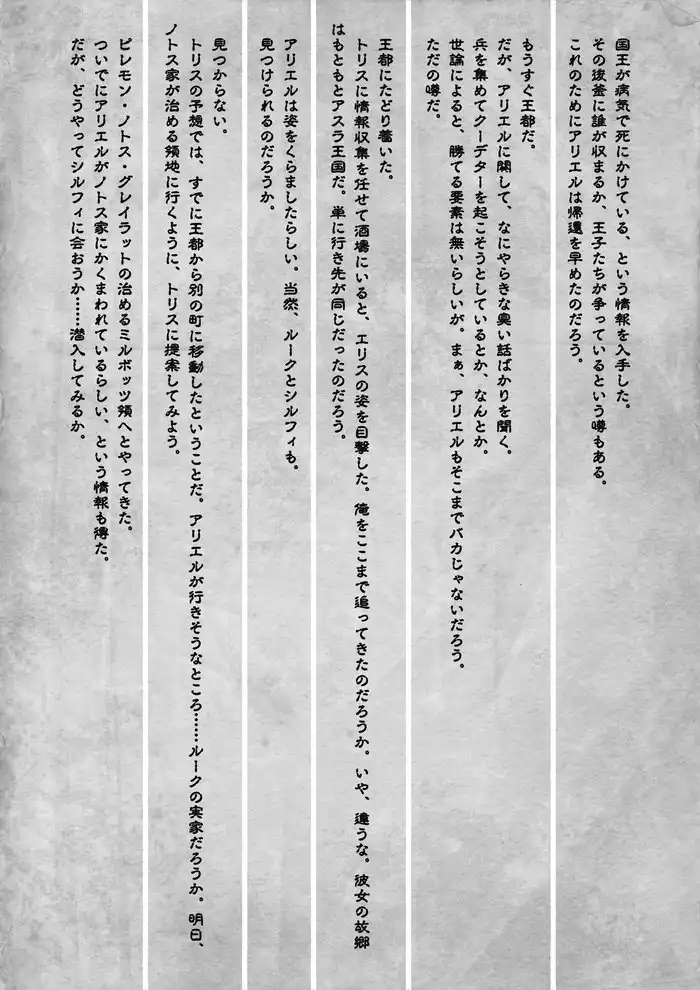 国王が病気で死にかけている、という情報を入手した。
その後釜に誰が収まるか、王子たちが争っているという噂もある。
これのためにアリエルは帰還を早めたのだろう。
もうすぐ王都だ。
だが、アリエルに関して、なにやらきな臭い話ばかりを聞く。
兵を集めてクーデターを起こそうとしているとか、なんとか。
世論によると、勝てる要素は無いらしいが。まぁ、アリエルもそこまでバカじゃないだろう。
ただの噂だ。
王都にたどり着いた。
トリスに情報収集を任せて酒場にいると、エリスの姿を目撃した。俺をここまで追ってきたのだろうか。いや、違うな。彼女の故郷
はもともとアスラ王国だ。単に行き先が同じだったのだろう。
アリエルは姿をくらましたらしい。当然、ルークとシルフィも。
見つけられるのだろうか。
見つからない。
トリスの予想では、すでに王都から別の町に移動したということだ。アリエルが行きそうなところ……ルークの実家だろうか。明日、
ノトス家が治める領地に行くように、トリスに提案してみよう。
ピレモン・ノトス・グレイラットの治めるミルボッツ領へとやってきた。
ついでにアリエルがノトス家にかくまわれているらしい、という情報も得た。
だが、どうやってシルフィに会おうか……潜入してみるか。